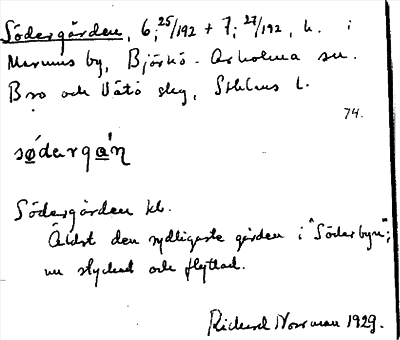 Södergården, 6; 25/192 + 7; 27/192, h. i
Marums by, Björkö-Arholma sn.
Bro och Vätö skg, Sthlms l.
74.
södergá̊ṇ
Södergården kb.
Äldst den sydligaste gården i "Söderbyn";
nu styckad och flyttad.
Rickard Norrman 1929.